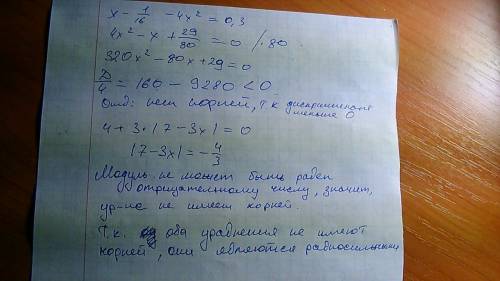 x - 1/16 - 4x² = 0,3
4x² - x + 29/80 = 0 /·80
320x² - 80x + 29 = 0
D/4 = 160 - 9280 < 0
Отв: нет корней, т.к дискриминант
меньше 0
4 + 3·|7 - 3x| = 0
|7 - 3x| = -4/3
Модуль не может быть равен
отрицательному числу, значит,
ур-ие не имеет корней.
Т.к. оба уравнения не имеют
корней, они являются равносильными